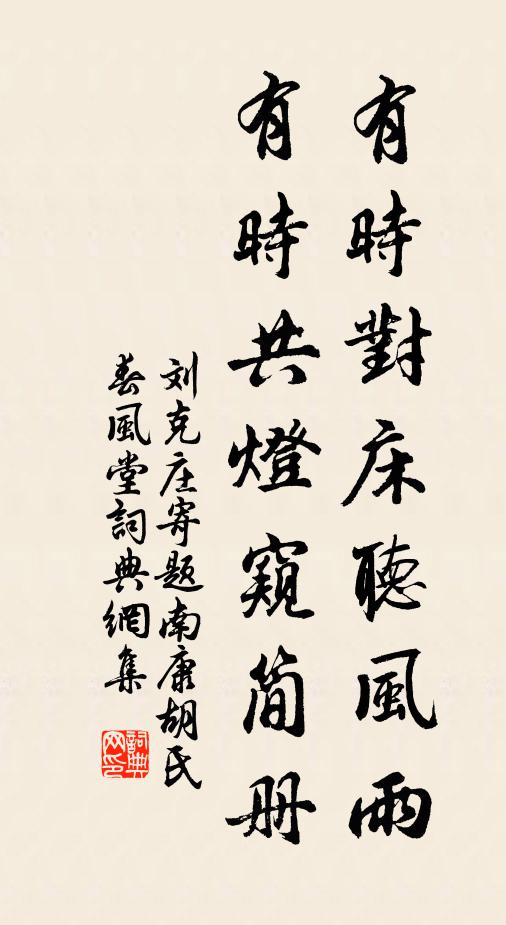 有時對床聽風雨
有時共燈窺简册
刘克庄寄题南康胡氏
春風堂詞典網集
詞典網印